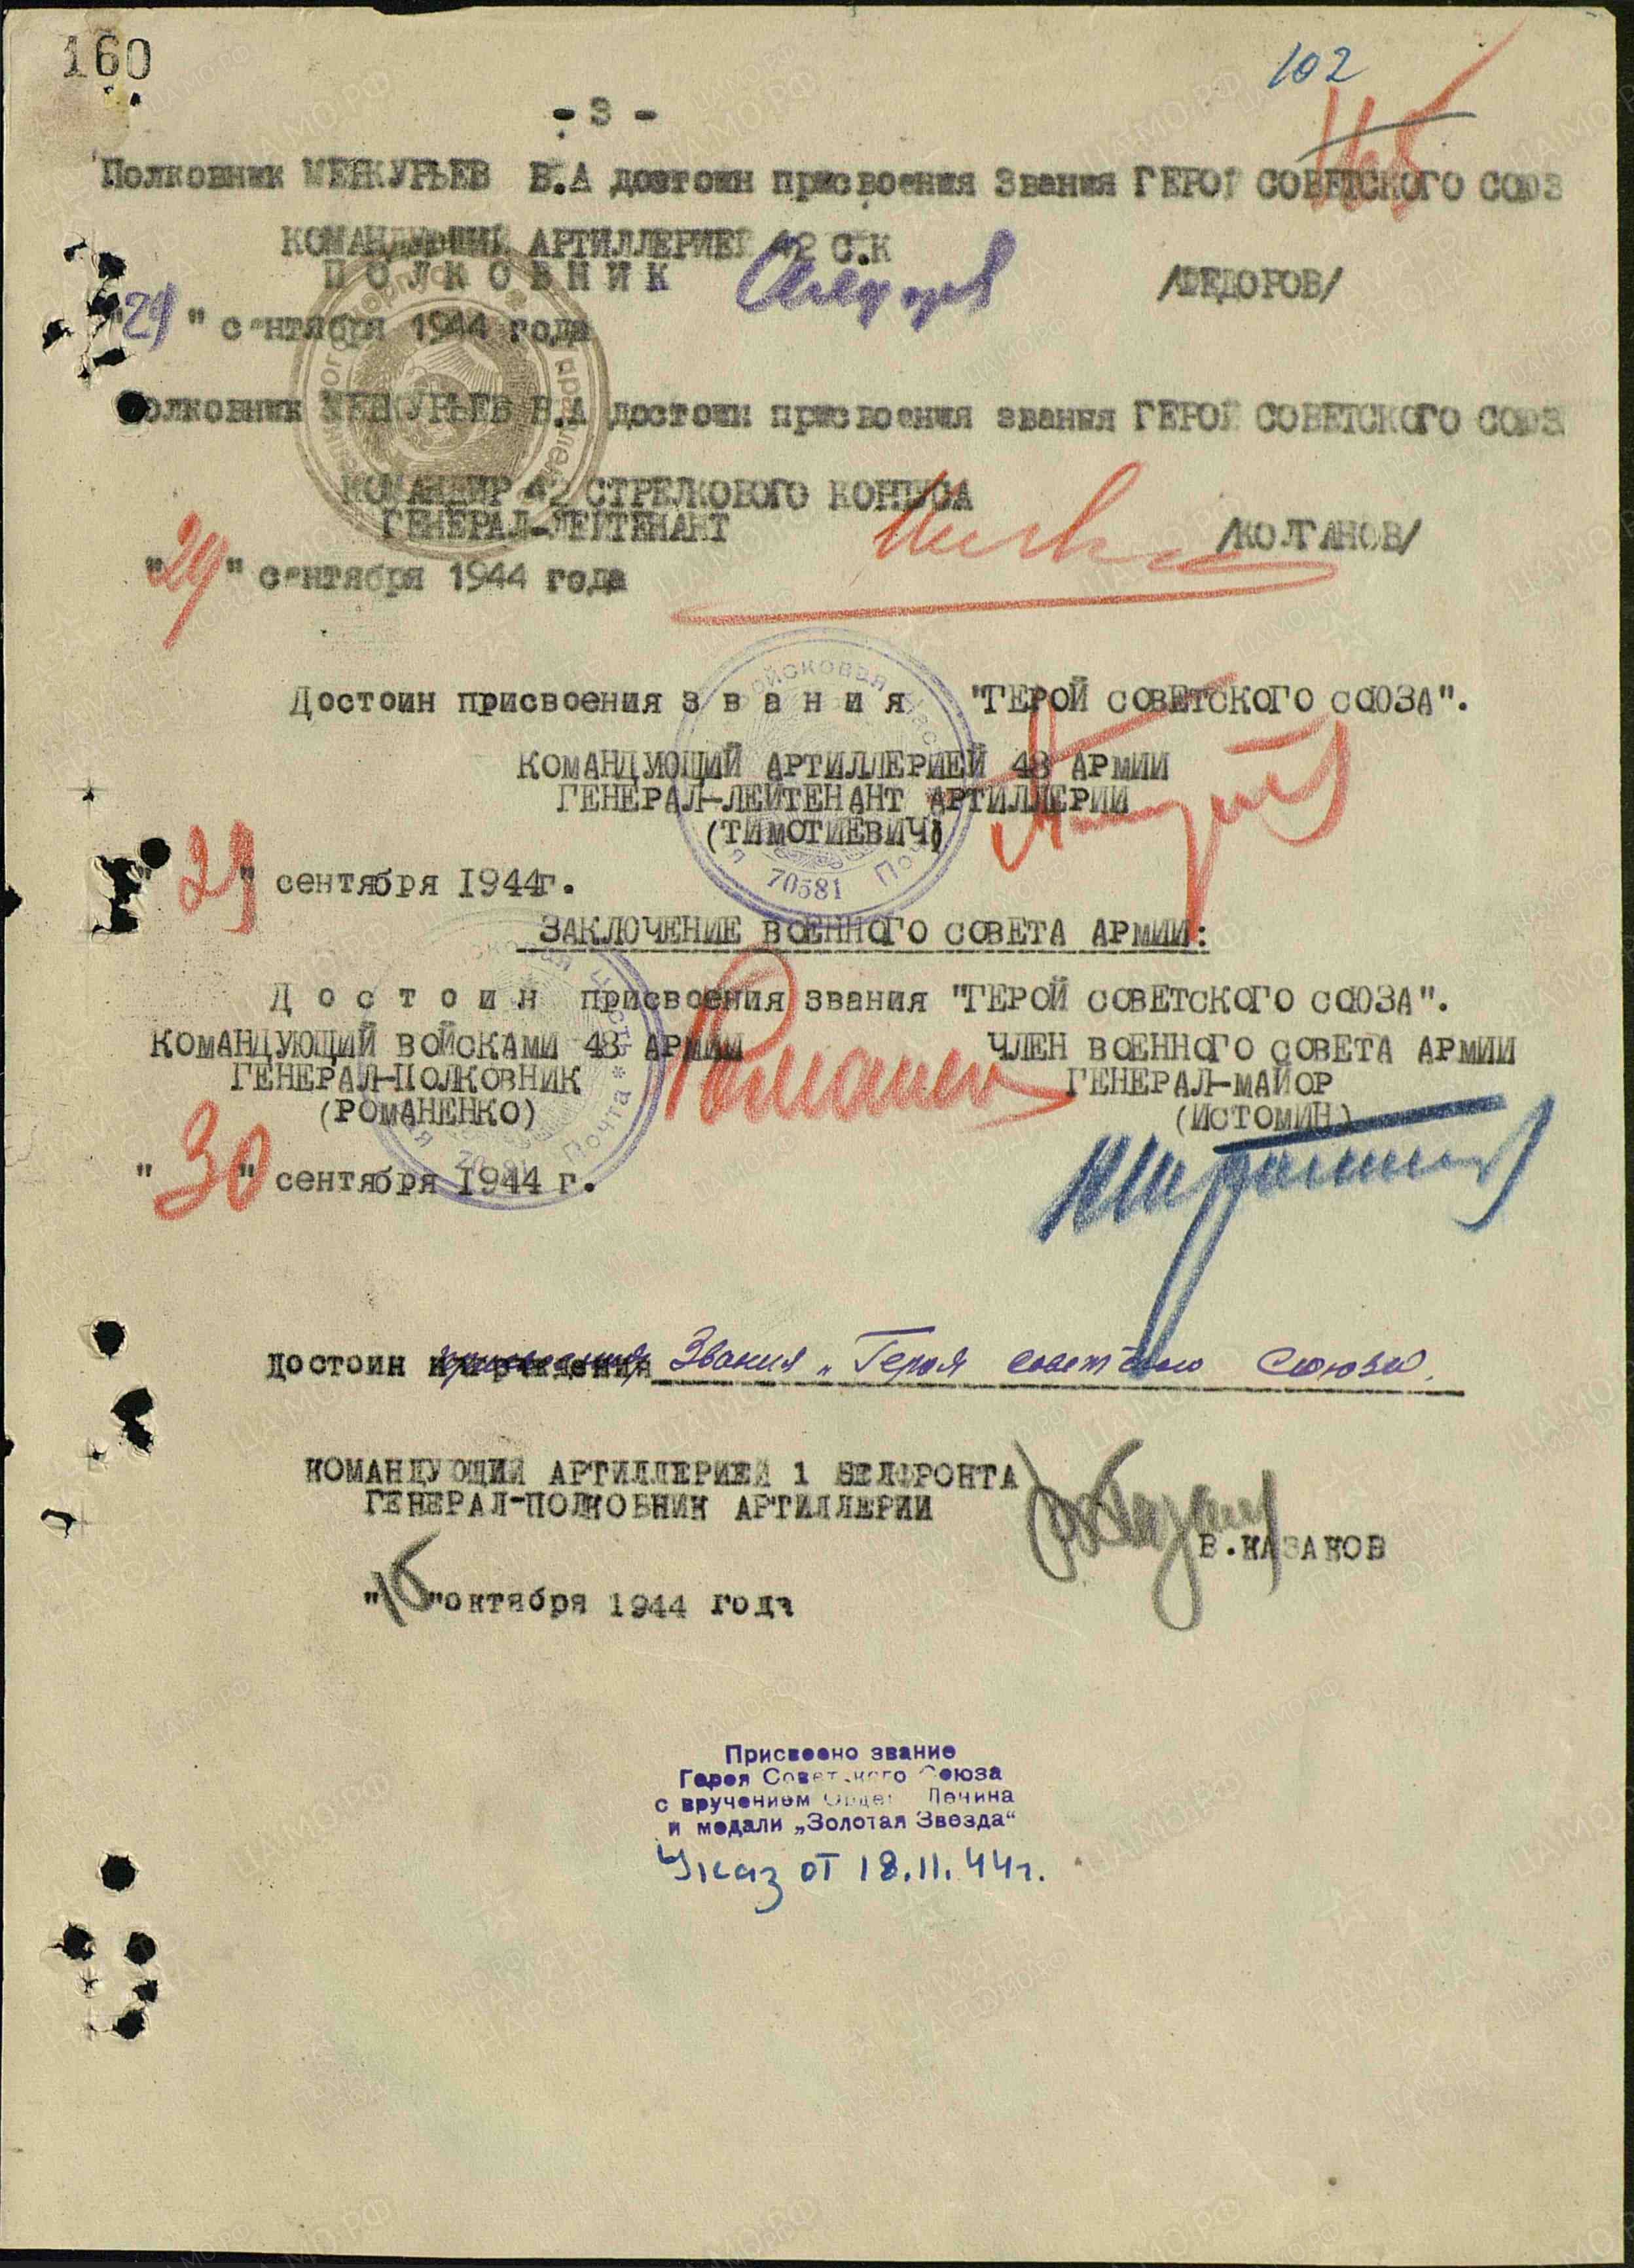 160
102
- 3 -
Полковник МЕНКУРЬЕВ В.А достоин присвоения Звания ГЕРОЙ СОВЕТСКОГО СОЮЗ
КОМАНДУЮЩИЙ АРТИЛЛЕРИЕЙ 42 С.К
ПОЛКОВНИК /ФЕДОРОВ/
"29" сентября 1944 года
Полковник МЕНКУРЬЕВ В.А достоин присвоения звания ГЕРОЙ СОВЕТСКОГО СОЮЗ
КОМАНДИР 42 СТРЕЛКОВОГО КОРПУСА
ГЕНЕРАЛ-ЛЕЙТЕНАНТ /КОЛГАНОВ/
"29" сентября 1944 года
Достоин присвоения з в а н и я "ГЕРОЙ СОВЕТСКОГО СОЮЗА".
КОМАНДУЮЩИЙ АРТИЛЛЕРИЕЙ 48 АРМИИ
ГЕНЕРАЛ-ЛЕЙТЕНАНТ АРТИЛЛЕРИИ
(ТИМОТИЕВИЧ)
70581
"29" сентября 1944г.
ЗАКЛЮЧЕНИЕ ВОЕННОГО СОВЕТА АРМИИ:
Д о с т о и н присвоения звания "ГЕРОЙ СОВЕТСКОГО СОЮЗА".
КОМАНДУЮЩИЙ ВОЙСКАМИ 48 АРМИИ ЧЛЕН ВОЕННОГО СОВЕТА АРМИИ
ГЕНЕРАЛ-ПОЛКОВНИК ГЕНЕРАЛ-МАЙОР
(РОМАНЕНКО) (ИСТОМИН)
"30" сентября 1944 г.
достоин присвоения Звания „Героя советского Союза.
КОМАНДУЮЩИЙ АРТИЛЛЕРИЕЙ 1 БЕЛФРОНТА
ГЕНЕРАЛ-ПОЛКОВНИК АРТИЛЛЕРИИ
В.КАЗАКОВ
"16"октября 1944 года
Присвоено звание
Героя Советского Союза
с вручением Ордена Ленина
и медали „Золотая Звезда“
Указ от 18.11.44г.